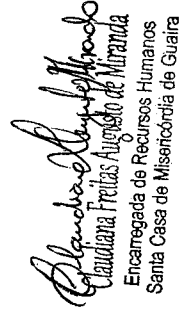 Claudiana Freitas Augusto de Miranda
Encarregada de Recursos Humanos
Santa Casa de Misericórdia de Guaira